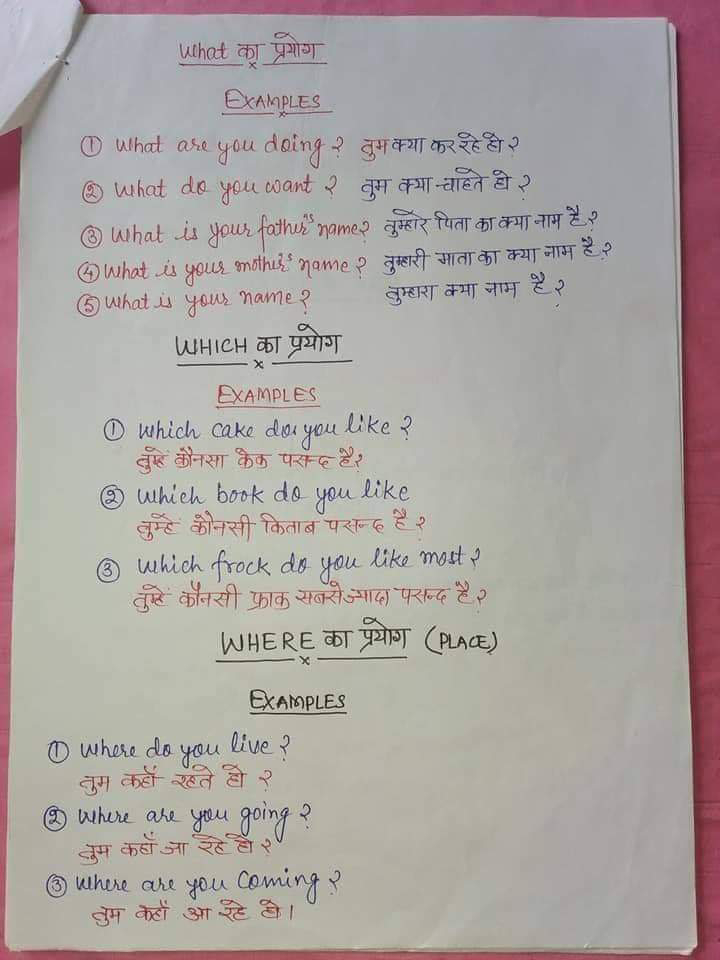 What का प्रयोग
EXAMPLES
① What are you doing? तुम क्या कर रहे हो?
② What do you want? तुम क्या चाहते हो?
③ What is your father's name? तुम्हारे पिता का क्या नाम है?
④ What is your mother's name? तुम्हारी माता का क्या नाम है?
⑤ What is your name? तुम्हारा क्या नाम है?
WHICH का प्रयोग
EXAMPLES
① Which cake do you like?
तुम्हें कौनसा केक पसन्द है?
② Which book do you like
तुम्हें कौनसी किताब पसन्द है?
③ Which frock do you like most?
तुम्हें कौनसी फ्राक सबसे ज्यादा पसन्द है?
WHERE का प्रयोग (PLACE)
EXAMPLES
① Where do you live?
तुम कहाँ रहते हो ?
② Where are you going?
तुम कहाँ जा रहे हो?
③ Where are you coming?
तुम कहाँ आ रहे हो।